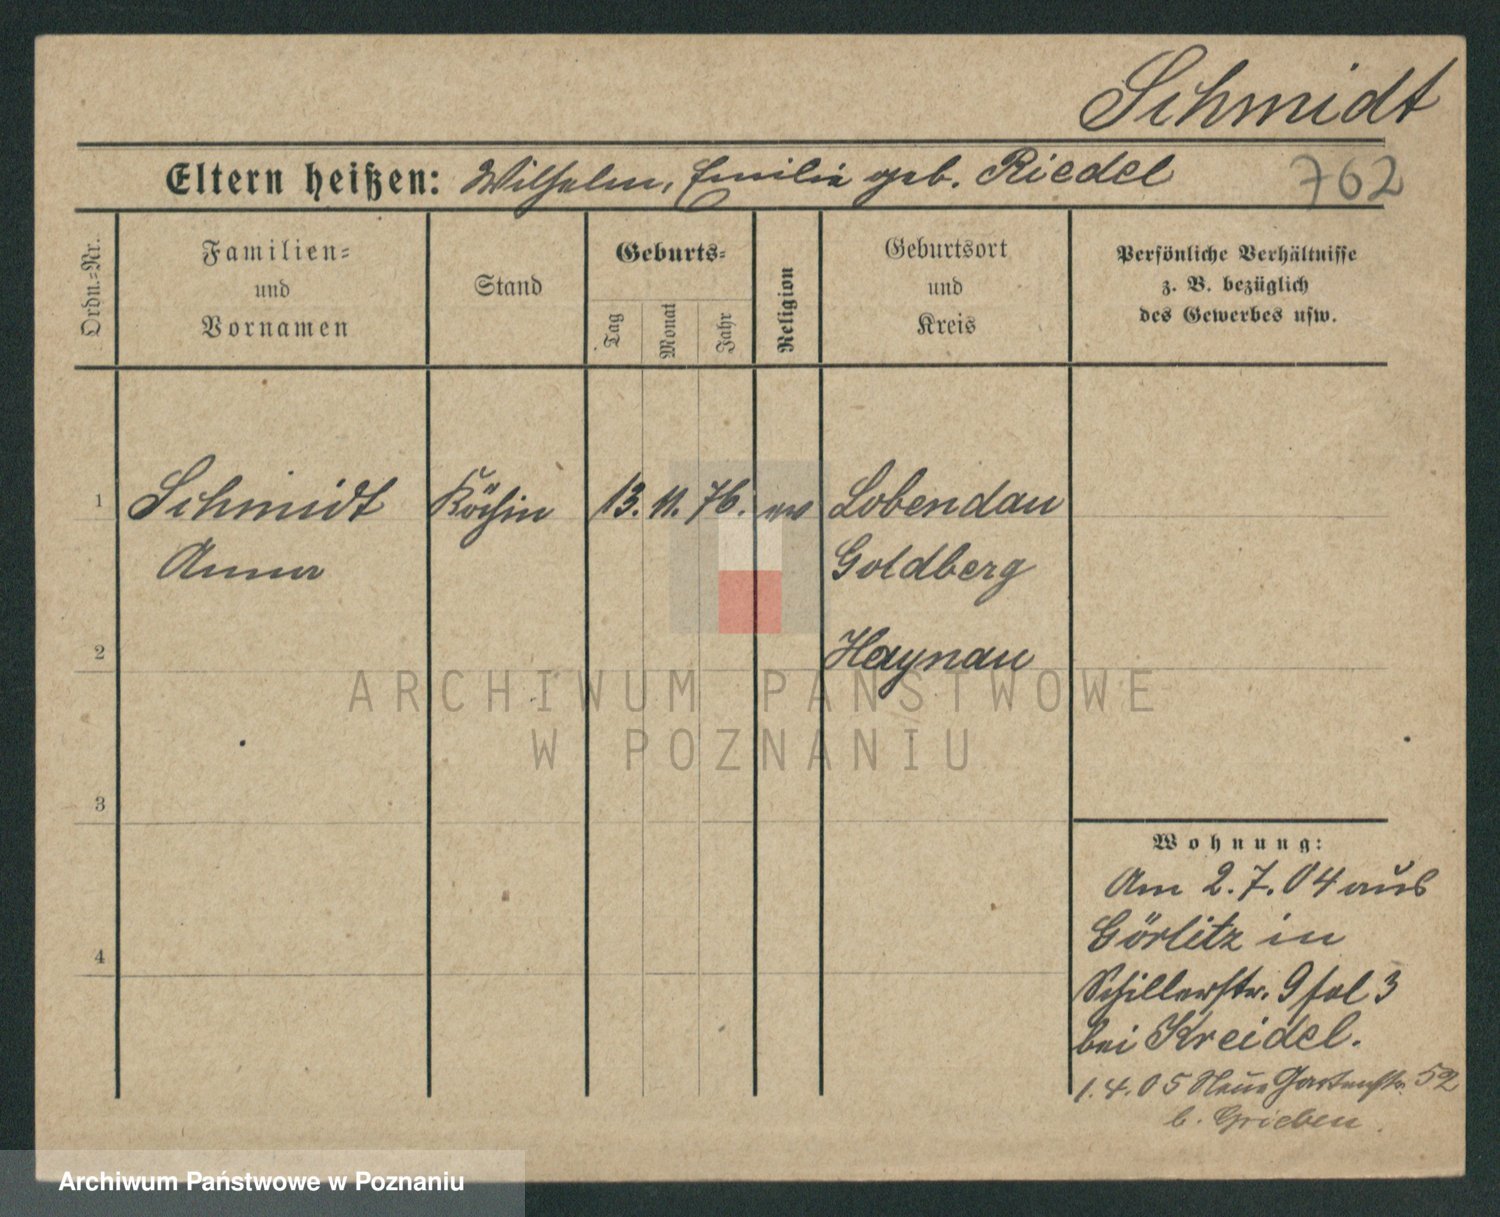 Schmidt
Eltern heißen: Wilhelm, Emilie geb. Riedel 762
Ordn.=Nr.
Familien=
und
Vornamen
Stand
Geburts=
Tag
Monat
Jahr
Religion
Geburtsort
und
Kreis
Persönliche Verhältnisse
z. B. bezüglich
des Gewerbes usw.
1 Schmidt Köchin 13. 11. 76. ev Lobendau
Anna Goldberg
2 Haynau
ARCHIWUM PAŃSTWOWE
W POZNANIU
3
Wohnung:
Am 2.7.04 aus
4 Görlitz in
Schillerstr. 9 3
bei Kreidel.
1.4.05 Neue Gartenstr. 52
b. Grieben.
Archiwum Państwowe w Poznaniu